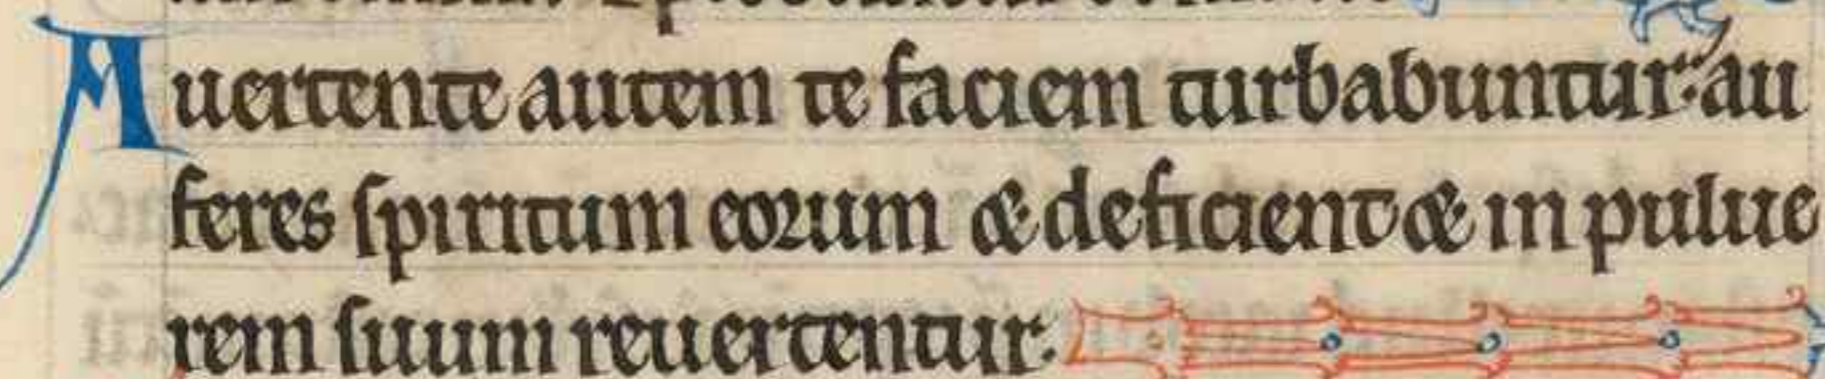 Auertente autem te faciem turbabuntur: au
feres spiritum eorum & deficient & in pulue
rem suum reuertentur.